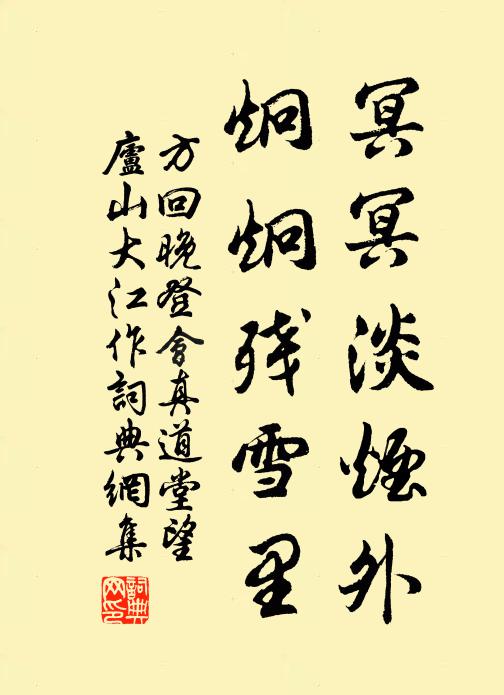 冥冥淡煙外
炯炯残雪里
方回晚登會真道堂望
廬山大江作詞典網集
詞典網印